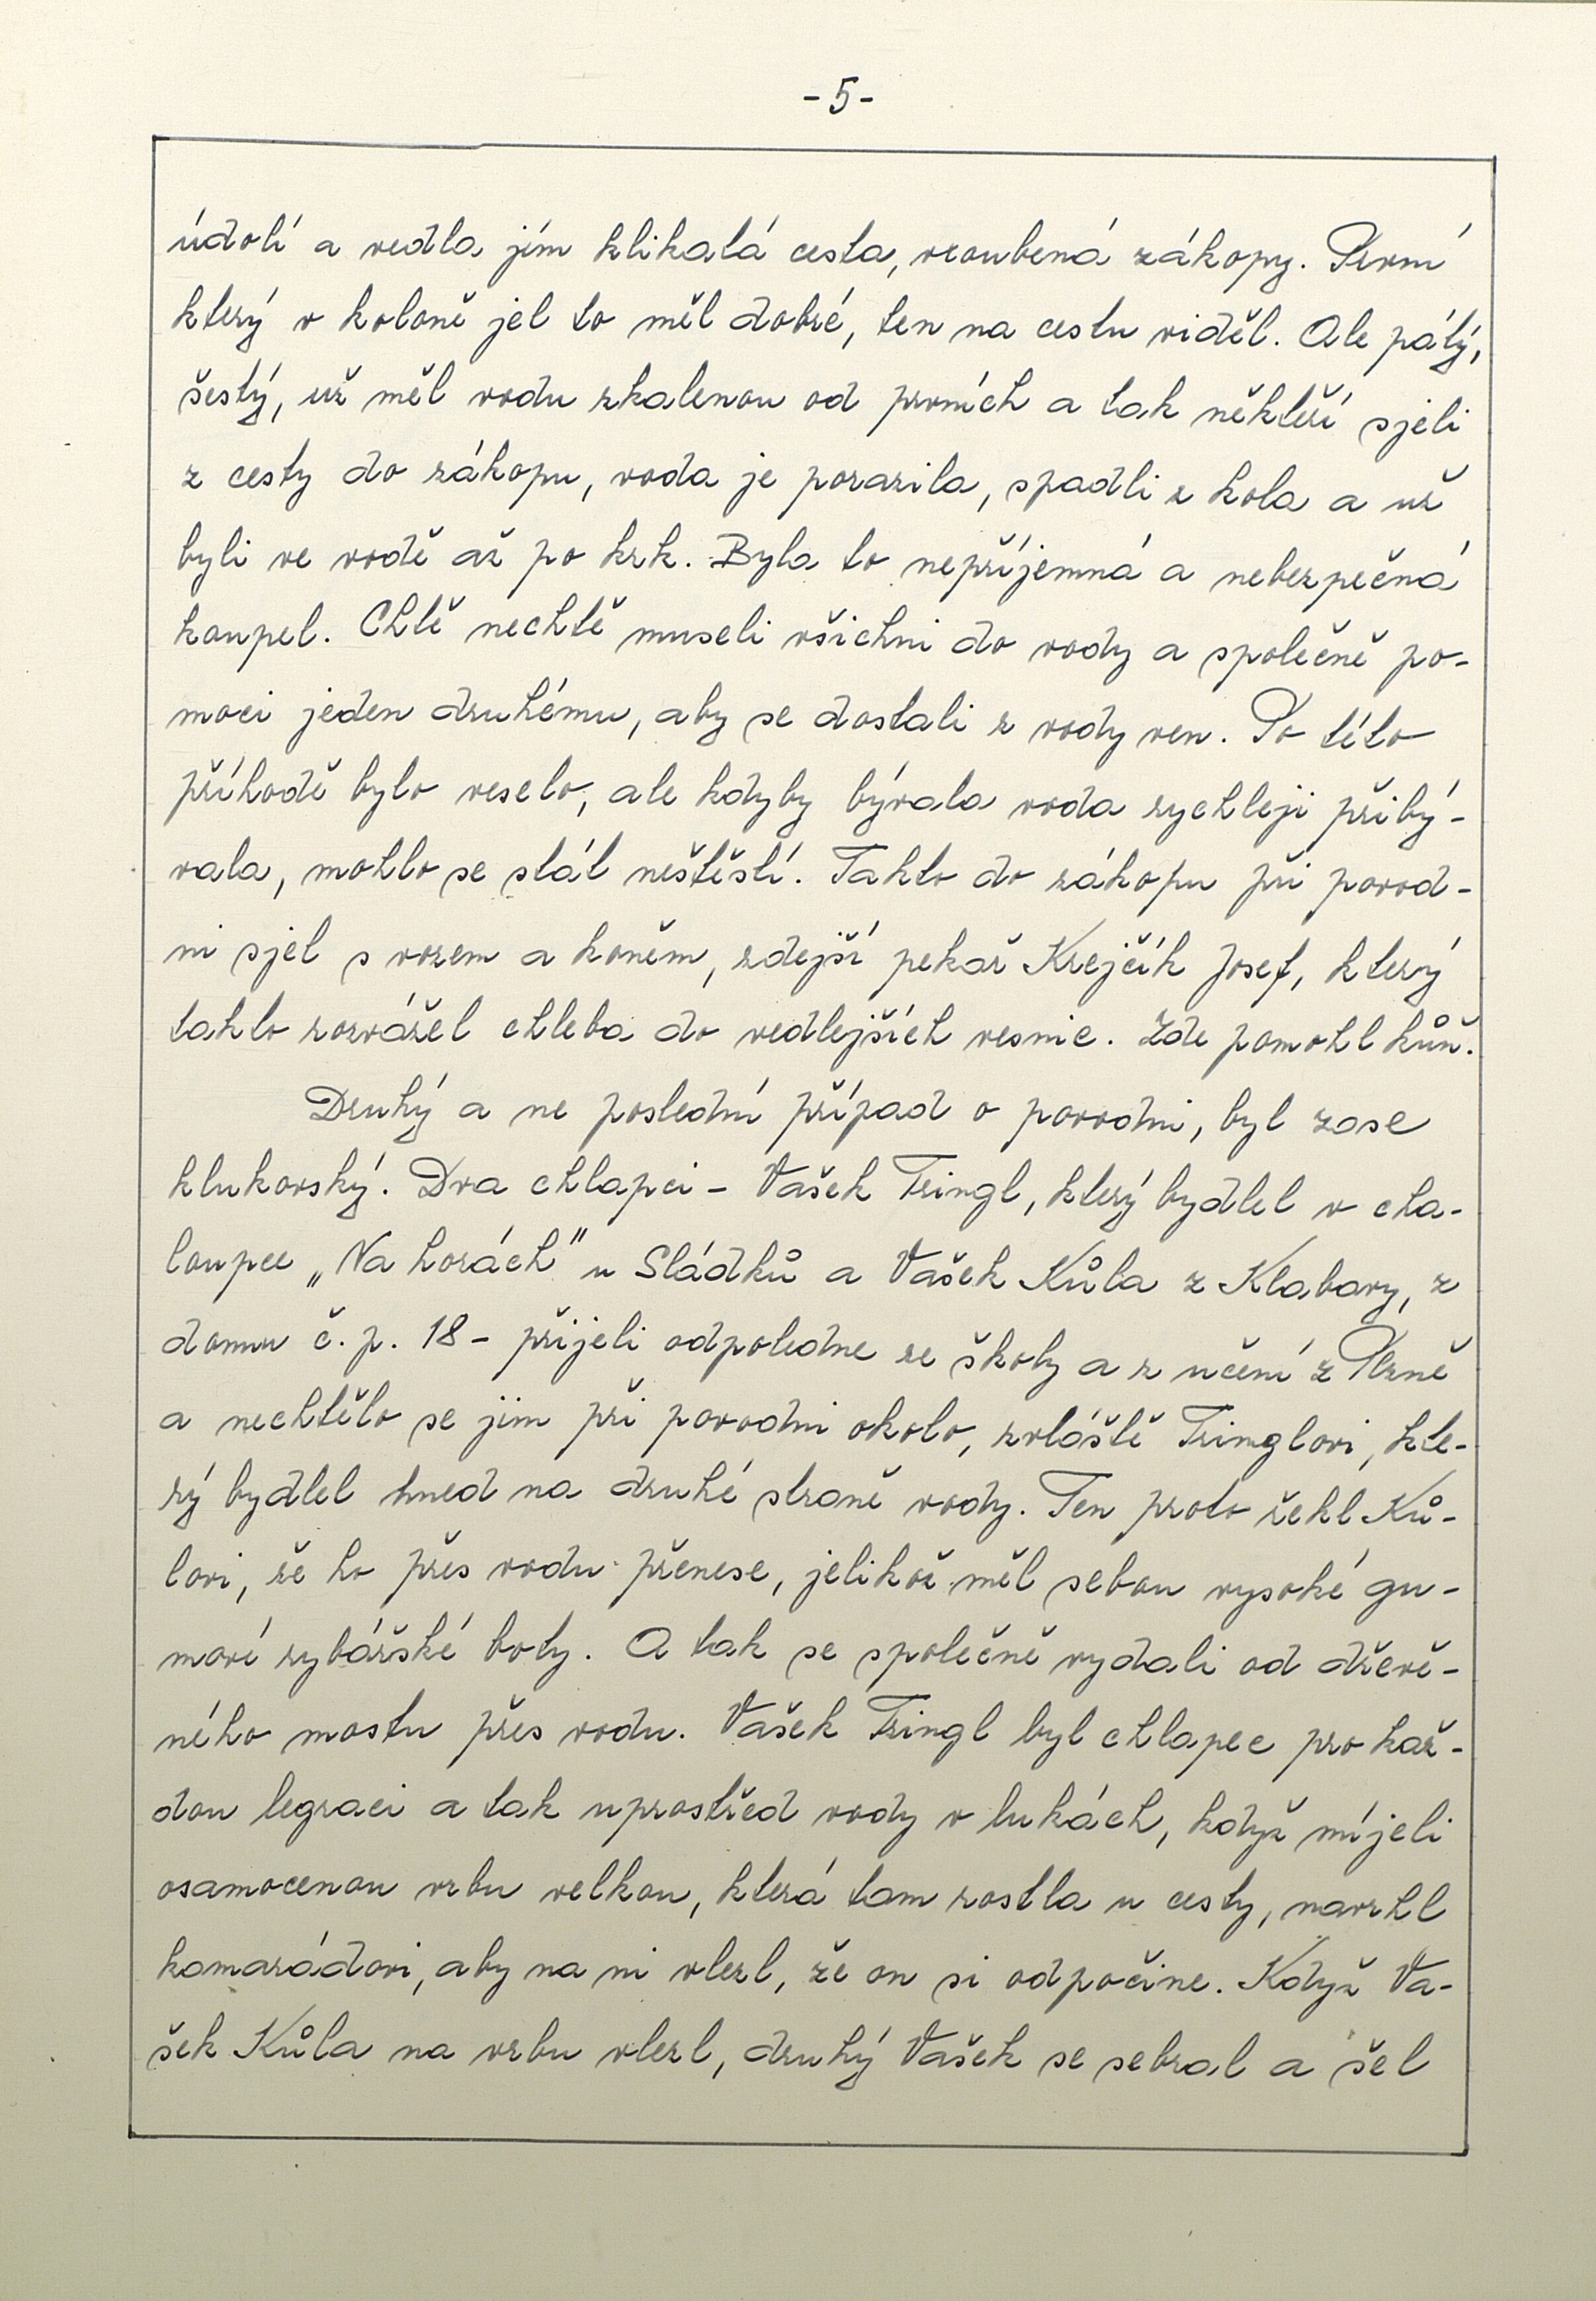 -5-
údolí a vedla jím klikatá cesta, vroubená zákopy. První
který v koloně jel to měl dobré, ten na cestu viděl. Ale pátý,
šestý, už měl vodu zkalenou od prvních a tak někteří sjeli
z cesty do zákopu, voda je porazila, spadli z kola a už
byli ve vodě až po krk. Byla to nepříjemná a nebezpečná
koupel. Chtě nechtě museli všichni do vody a společně po-
moci jeden druhému, aby se dostali z vody ven. Po této
příhodě bylo veselo, ale kdyby bývala voda rychleji přibý-
vala, mohlo se stát neštěstí. Takto do zákopu při povod-
ni sjel s vozem a koněm, zdejší pekař Krejčík Josef, který
takto rozvážel chleba do vedlejších vesnic. Zde pomohl kůň.
Druhý a ne poslední případ o povodni, byl zase
klukovský. Dva chlapci - Vašek Tringl, který bydlel v cha-
loupce „Na horách" u Sládků a Vašek Kůla z Klabavy, z
domu č. p. 18 - přijeli odpoledne ze školy a z učení z Plzně
a nechtělo se jim při povodni okolo, zvláště Tringlovi, kte-
rý bydlel hned na druhé straně vody. Ten proto řekl Ků-
lovi, že ho přes vodu přenese, jelikož měl sebou vysoké gu-
mové rybářské boty. A tak se společně vydali od dřevě-
ného mostu přes vodu. Vašek Tringl byl chlapec pro kaž-
dou legraci a tak uprostřed vody v lukách, když míjeli
osamocenou vrbu velkou, která tam rostla u cesty, navrhl
kamarádovi, aby na ni vlezl, že on si odpočine. Když Va-
šek Kůla na vrbu vlezl, druhý Vašek se sebral a šel